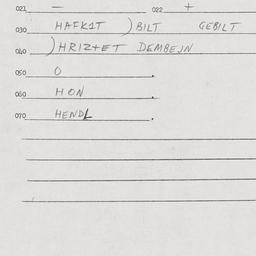 021 — 022 +
030 HAFK1T )BILT GEBILT
040 )HRIZ+ET DEMBEJN
050 O .
060 HON .
070 HENDL .